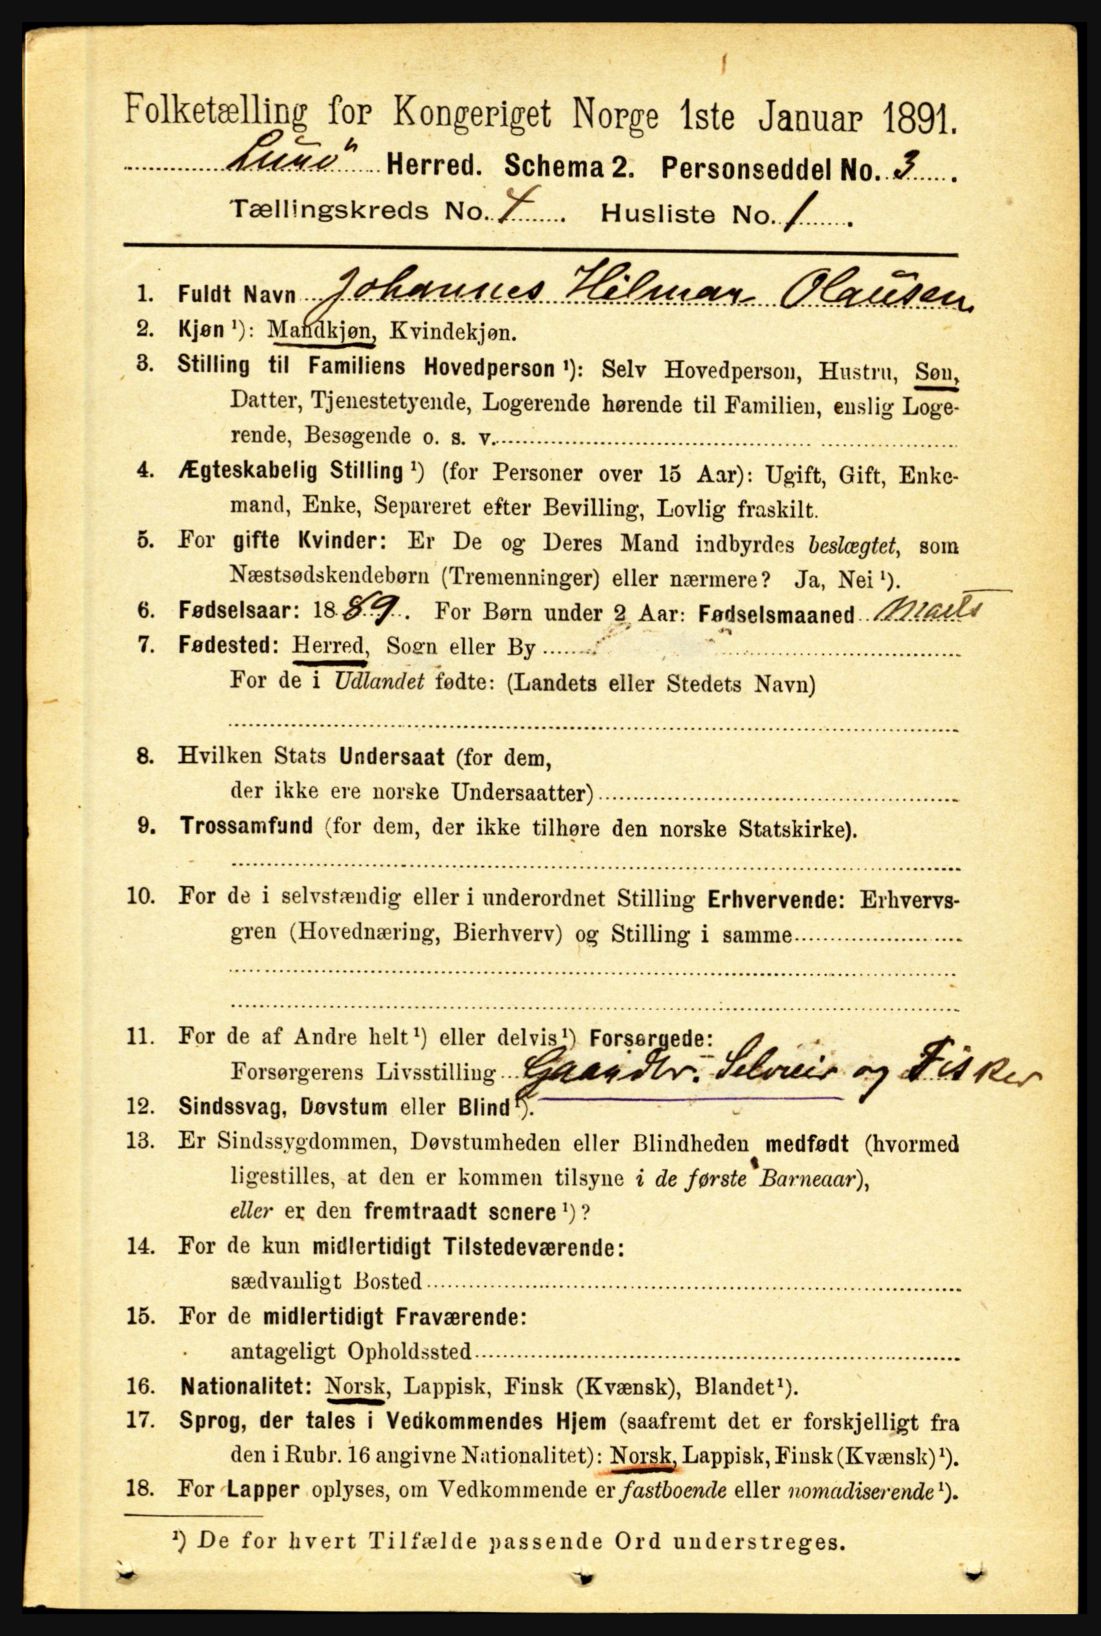 Folketælling for Kongeriget Norge 1ste Januar 1891.
Lurö Herred. Schema 2. Personseddel No. 3.
Tællingskreds No. 4. Husliste No. 1.
1. Fuldt Navn Johannes Hilmar Olausen
2. Kjøn ¹): Mandkjøn, Kvindekjøn.
3. Stilling til Familiens Hovedperson ¹): Selv Hovedperson, Hustru, Søn,
Datter, Tjenestetyende, Logerende hørende til Familien, enslig Loge-
rende, Besøgende o. s. v.
4. Ægteskabelig Stilling ¹) (for Personer over 15 Aar): Ugift, Gift, Enke-
mand, Enke, Separeret efter Bevilling, Lovlig fraskilt.
5. For gifte Kvinder: Er De og Deres Mand indbyrdes beslægtet, som
Næstsødskendebørn (Tremenninger) eller nærmere? Ja, Nei ¹).
6. Fødselsaar: 1889. For Børn under 2 Aar: Fødselsmaaned Marts
7. Fødested: Herred, Sogn eller By
For de i Udlandet fødte: (Landets eller Stedets Navn)
8. Hvilken Stats Undersaat (for dem,
der ikke ere norske Undersaatter)
9. Trossamfund (for dem, der ikke tilhøre den norske Statskirke).
10. For de i selvstændig eller i underordnet Stilling Erhvervende: Erhvervs-
gren (Hovednæring, Bierhverv) og Stilling i samme
11. For de af Andre helt ¹) eller delvis ¹) Forsørgede:
Forsørgerens Livsstilling Gaardbr. Selveier og Fisker
12. Sindssvag, Døvstum eller Blind ¹).
13. Er Sindssygdommen, Døvstumheden eller Blindheden medfødt (hvormed
ligestilles, at den er kommen tilsyne i de første Barneaar),
eller er den fremtraadt senere ¹)?
14. For de kun midlertidigt Tilstedeværende:
sædvanligt Bosted
15. For de midlertidigt Fraværende:
antageligt Opholdssted
16. Nationalitet: Norsk, Lappisk, Finsk (Kvænsk), Blandet ¹).
17. Sprog, der tales i Vedkommendes Hjem (saafremt det er forskjelligt fra
den i Rubr. 16 angivne Nationalitet): Norsk, Lappisk, Finsk (Kvænsk) ¹).
18. For Lapper oplyses, om Vedkommende er fastboende eller nomadiserende ¹).
¹) De for hvert Tilfælde passende Ord understreges.